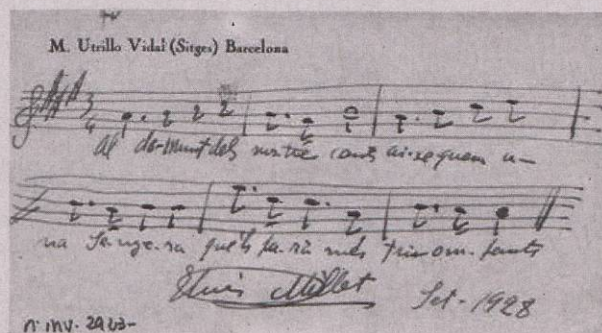 M. Utrillo Vidal (Sitges) Barcelona
3
4
Al de-munt dels nostre cants ai-xequem u-
na Se-nye-ra que'ls fa-rà més triom-fants
Lluis Millet Set - 1928
n. inv.